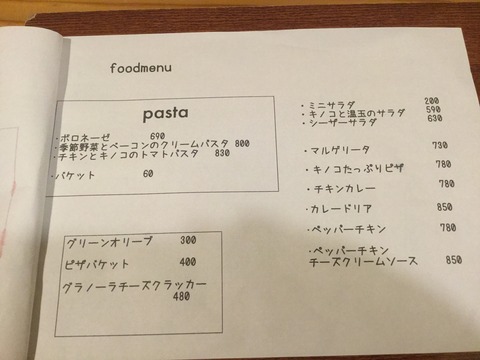 foodmenu
pasta
・ボロネーゼ 690
・季節野菜とベーコンのクリームパスタ 800
・チキンとキノコのトマトパスタ 830
・バケット 60
グリーンオリーブ 300
ピザバケット 400
グラノーラチーズクラッカー
480
・ミニサラダ 200
・キノコと温玉のサラダ 590
・シーザーサラダ 630
・マルゲリータ 730
・キノコたっぷりピザ 780
・チキンカレー 780
・カレードリア 850
・ペッパーチキン 780
・ペッパーチキン
チーズクリームソース 850